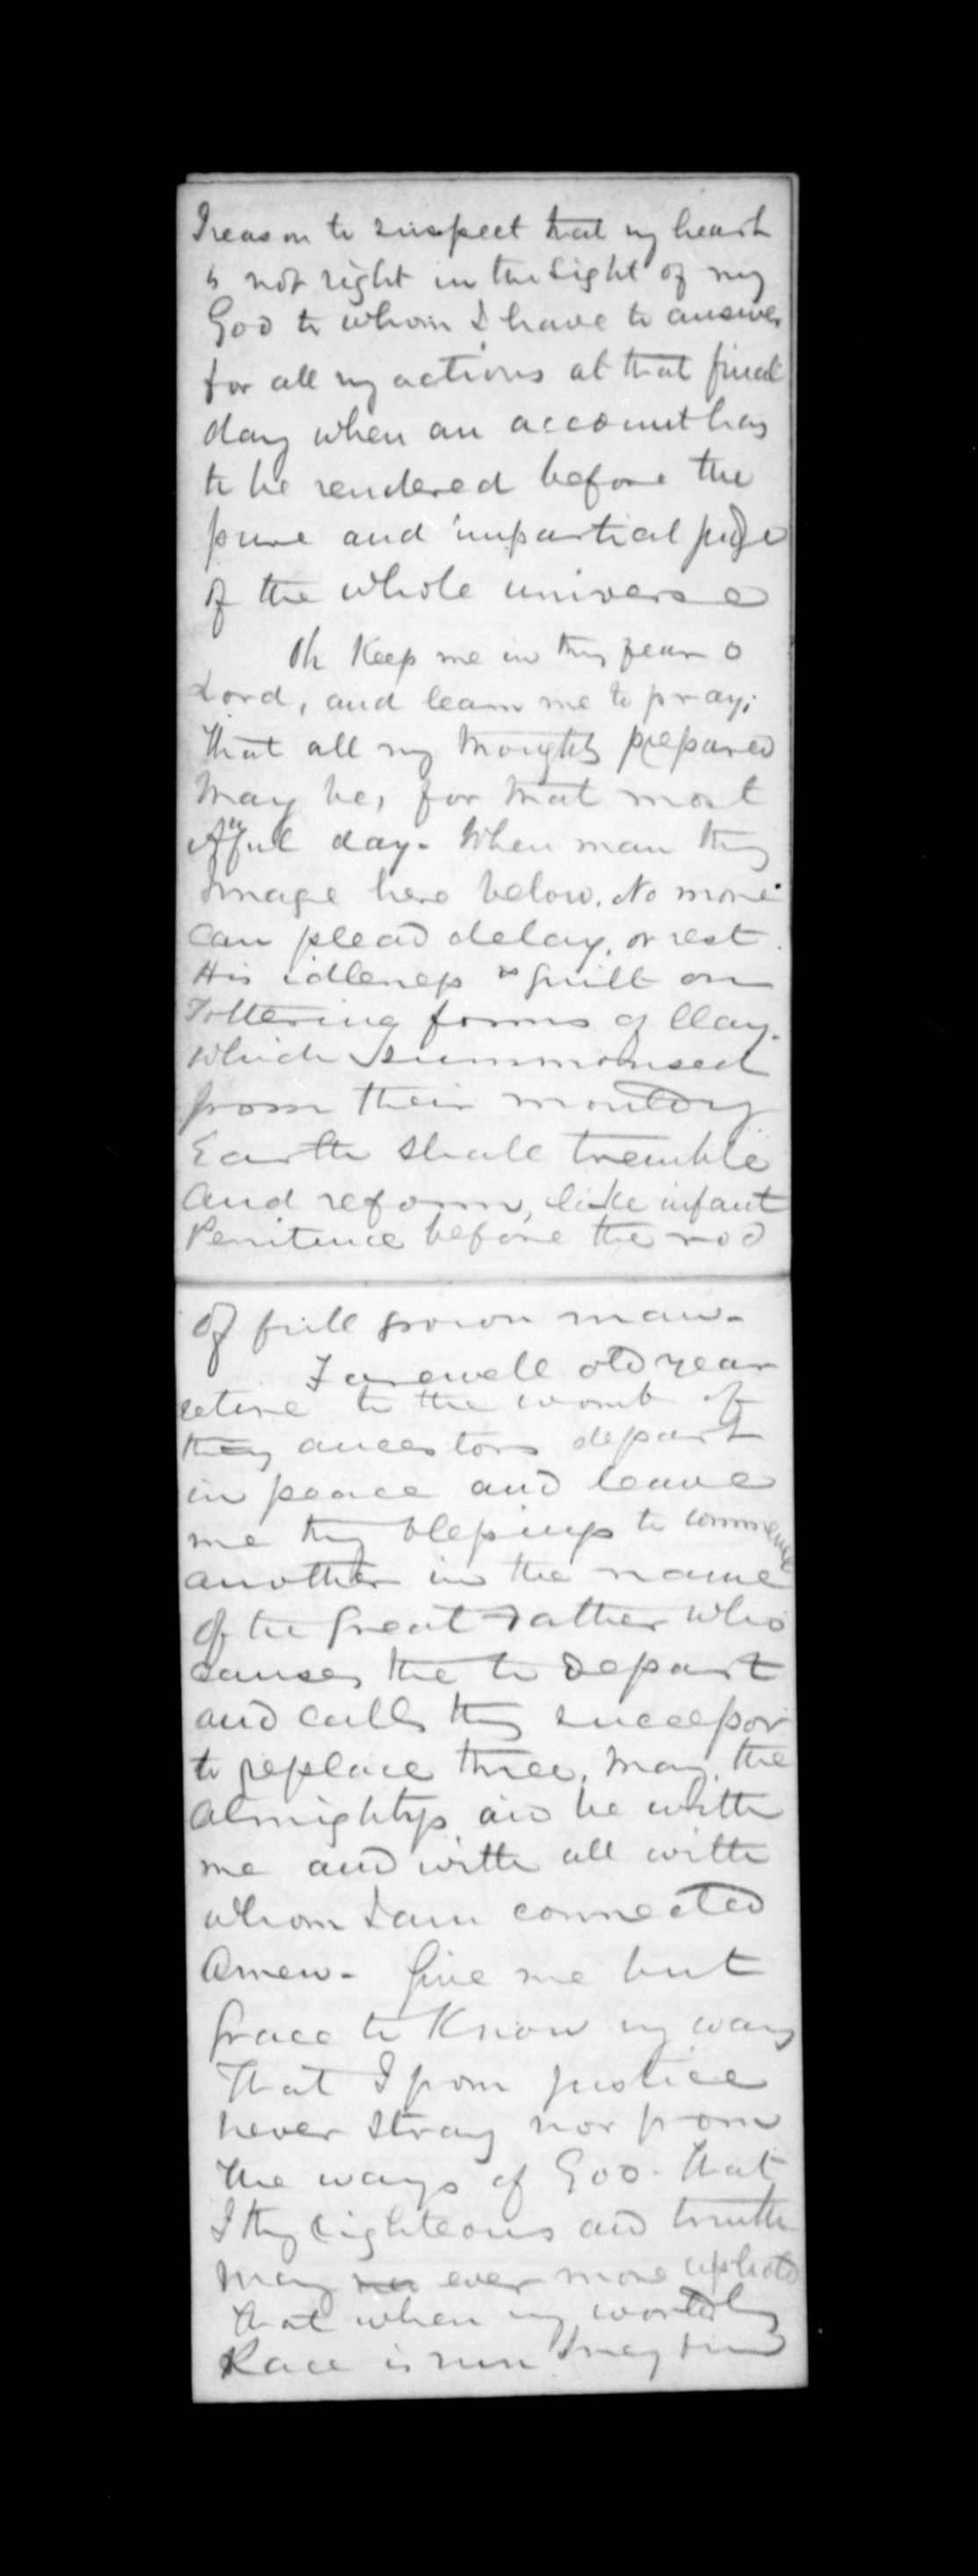 I reason to suspect that my heart
is not right in the sight of my
God to whom I have to answer
for all my actions at that final
day when an account has
to be rendered before the
pure and impartial judge
of the whole universe
Oh Keep me in thy fear O
Lord, and learn me to pray;
That all my thoughts prepared
May be, for that most
Awful day. When man thy
Image here below. No more
Can plead delay, or rest
His idleness & guilt on
Tottering forms of Clay.
Which summonsed
from their mouldry
Earth shall tremble
And reform, like infant
Penitence before the rod
Of full grown man.
Farewell old year
retire to the womb of
thy ancestors depart
in peace and leave
me thy blessings to commence
another in the name
of the Great Father who
causes the to depart
and calls thy successor
to replace thee, may the
Almightys aid be with
me and with all with
whom I am connected
Amen - Give me but
Grace to Know my way
That I from justice
never stray nor from
The ways of God. That
I thy righteous and truth
May ever more uphold
That when my worldly
Race is run I may